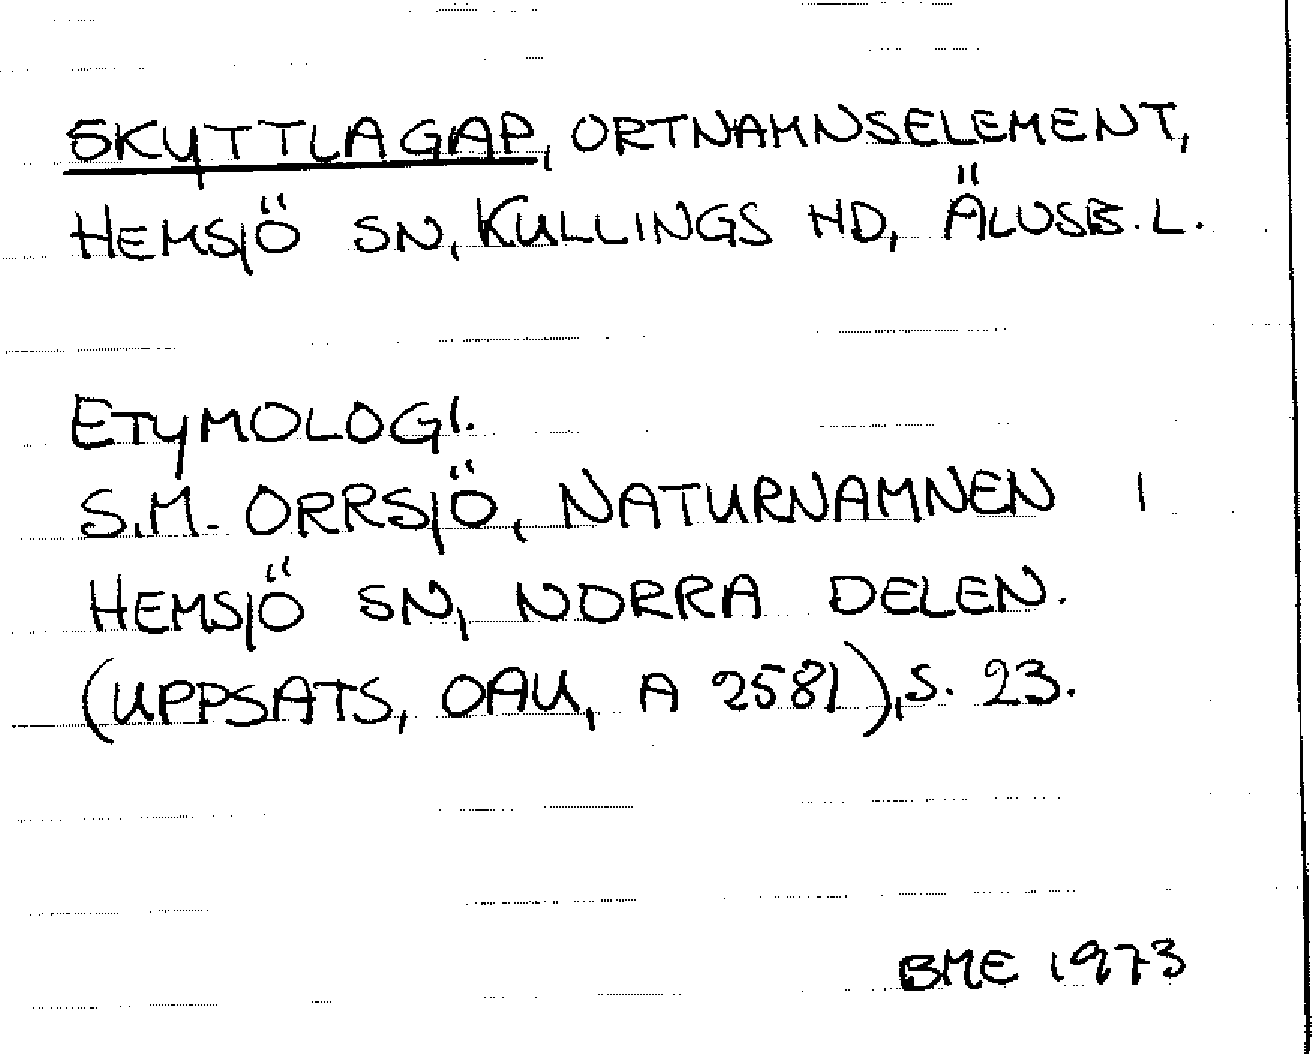 SKYTTLAGAP, ORTNAMNSELEMENT,
HEMSJÖ SN, KULLINGS HD, ÄLVSB. L.
ETYMOLOGI.
S.M. ORRSJÖ, NATURNAMNEN I
HEMSJÖ SN, NORRA DELEN.
(UPPSATS, OAU, A 2581), S. 23.
BME 1973